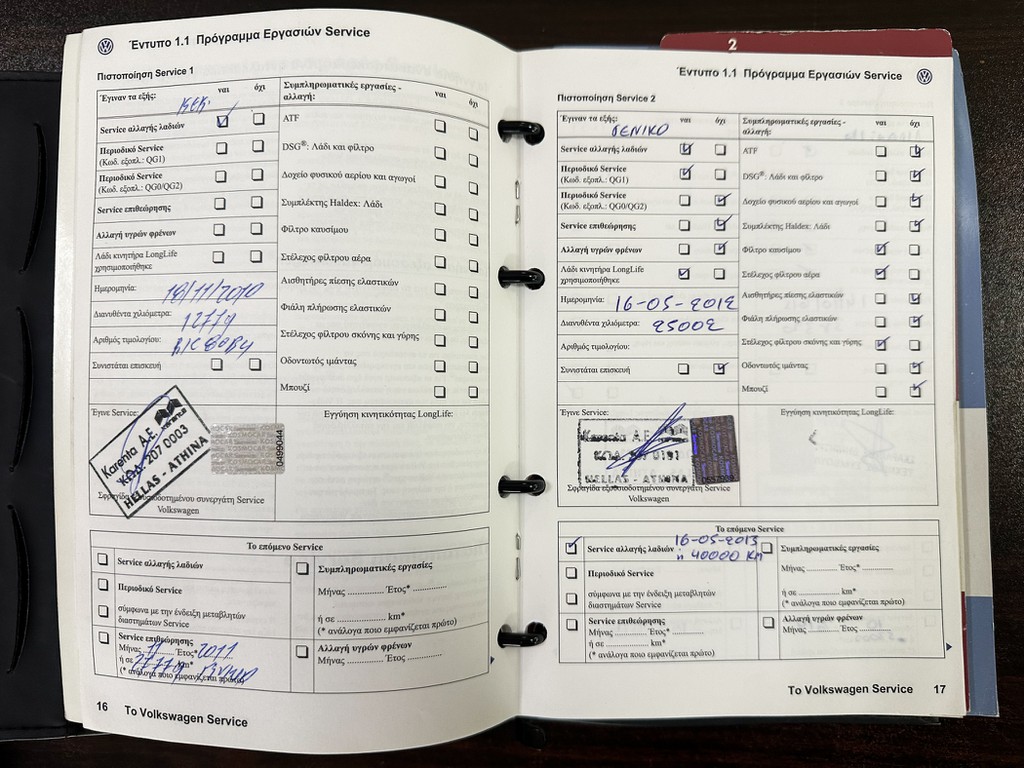 Έντυπο 1.1 Πρόγραμμα Εργασιών Service
Πιστοποίηση Service 1
Έγιναν τα εξής: ναι όχι
Service αλλαγής λαδιών
Περιοδικό Service
(Κωδ. εξοπλ.: QG1)
Περιοδικό Service
(Κωδ. εξοπλ.: QG0/QG2)
Service επιθεώρησης
Αλλαγή υγρών φρένων
Λάδι κινητήρα LongLife
χρησιμοποιήθηκε
Ημερομηνία: 18/11/2010
Διανυθέντα χιλιόμετρα: 12779
Αριθμός τιμολογίου:
Συνιστάται επισκευή
Συμπληρωματικές εργασίες -
αλλαγή: ναι όχι
ATF
DSG®: Λάδι και φίλτρο
Δοχείο φυσικού αερίου και αγωγοί
Συμπλέκτης Haldex: Λάδι
Φίλτρο καυσίμου
Στέλεχος φίλτρου αέρα
Αισθητήρες πίεσης ελαστικών
Φιάλη πλήρωσης ελαστικών
Στέλεχος φίλτρου σκόνης και γύρης
Οδοντωτός ιμάντας
Μπουζί
Έγινε Service:
Karenta A.E.
ΚΩΔ. 207 0003
HELLAS - ATHINA
0499044
Σφραγίδα εξουσιοδοτημένου συνεργάτη Service
Volkswagen
Εγγύηση κινητικότητας LongLife:
Το επόμενο Service
Service αλλαγής λαδιών
Περιοδικό Service
σύμφωνα με την ένδειξη μεταβλητών
διαστημάτων Service
Service επιθεώρησης
Μήνας 11 Έτος* 2011
ή σε 27779 km*
(* ανάλογα ποιο εμφανίζεται πρώτο)
Συμπληρωματικές εργασίες
Μήνας ............ Έτος* ............
ή σε ..................... km*
(* ανάλογα ποιο εμφανίζεται πρώτο)
Αλλαγή υγρών φρένων
Μήνας ............ Έτος ............
16 Το Volkswagen Service
2
Έντυπο 1.1 Πρόγραμμα Εργασιών Service
Πιστοποίηση Service 2
Έγιναν τα εξής: ναι όχι
ΓΕΝΙΚΟ
Service αλλαγής λαδιών
Περιοδικό Service
(Κωδ. εξοπλ.: QG1)
Περιοδικό Service
(Κωδ. εξοπλ.: QG0/QG2)
Service επιθεώρησης
Αλλαγή υγρών φρένων
Λάδι κινητήρα LongLife
χρησιμοποιήθηκε
Ημερομηνία: 16-05-2012
Διανυθέντα χιλιόμετρα: 25002
Αριθμός τιμολογίου:
Συνιστάται επισκευή
Συμπληρωματικές εργασίες -
αλλαγή: ναι όχι
ATF
DSG®: Λάδι και φίλτρο
Δοχείο φυσικού αερίου και αγωγοί
Συμπλέκτης Haldex: Λάδι
Φίλτρο καυσίμου
Στέλεχος φίλτρου αέρα
Αισθητήρες πίεσης ελαστικών
Φιάλη πλήρωσης ελαστικών
Στέλεχος φίλτρου σκόνης και γύρης
Οδοντωτός ιμάντας
Μπουζί
Έγινε Service:
Karenta A.E.
ΚΩΔ. 207 0191
HELLAS - ATHINA
Σφραγίδα εξουσιοδοτημένου συνεργάτη Service
Volkswagen
Εγγύηση κινητικότητας LongLife:
Το επόμενο Service
Service αλλαγής λαδιών 16-05-2013
ή 40000 KM
Περιοδικό Service
σύμφωνα με την ένδειξη μεταβλητών
διαστημάτων Service
Service επιθεώρησης
Μήνας ............ Έτος* ............
ή σε ..................... km*
(* ανάλογα ποιο εμφανίζεται πρώτο)
Συμπληρωματικές εργασίες
Μήνας ............ Έτος* ............
ή σε ..................... km*
(* ανάλογα ποιο εμφανίζεται πρώτο)
Αλλαγή υγρών φρένων
Μήνας ............ Έτος ............
Το Volkswagen Service 17